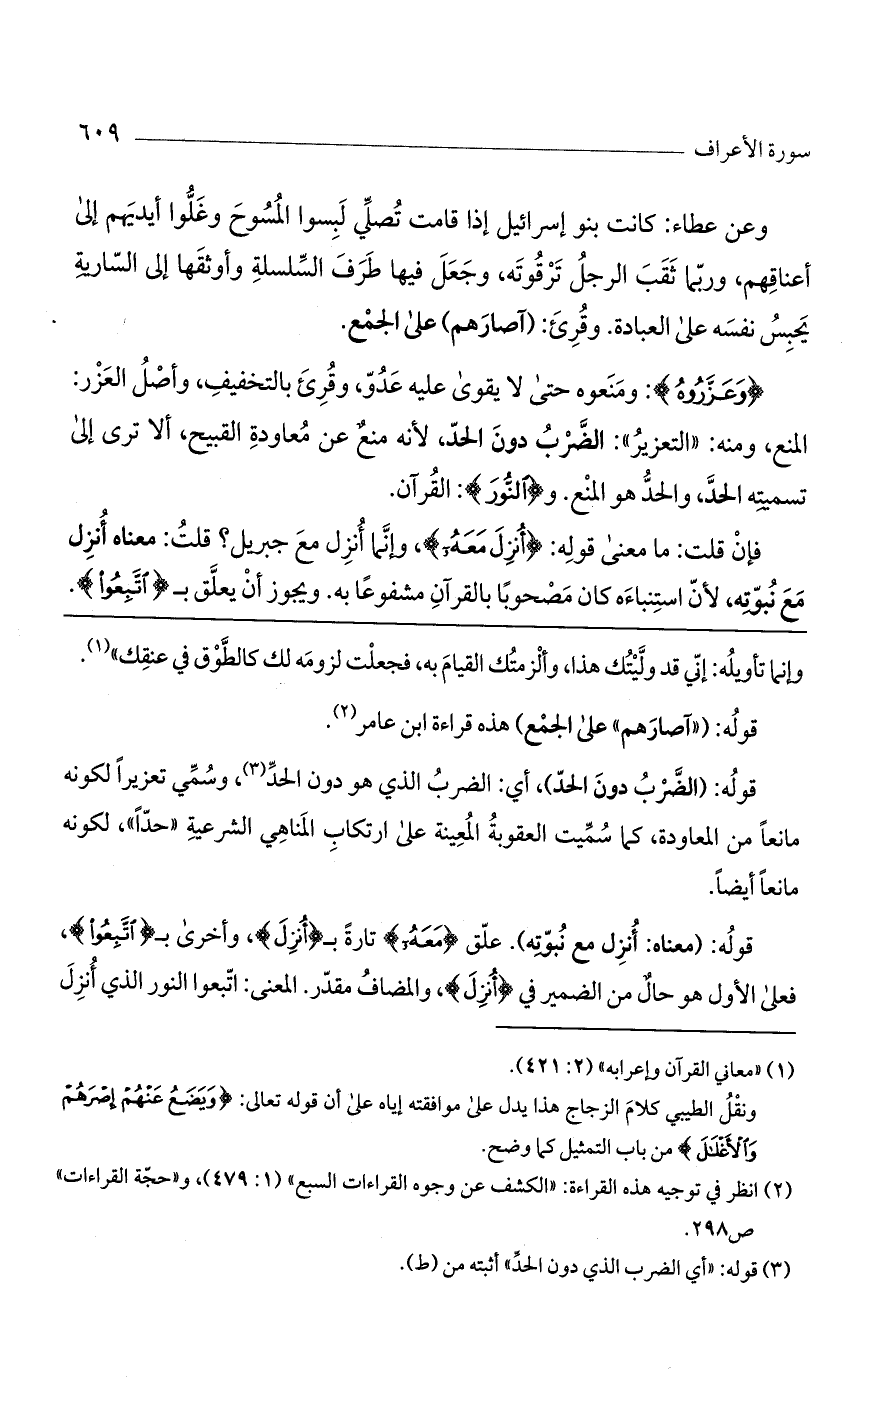 سورة الأعراف ٦٠٩
وعن عطاء: كانت بنو إسرائيل إذا قامت تُصلِّي لَبِسوا المُسُوحَ وغَلُّوا أيديَهم إلىٰ
أعناقِهم، وربّما ثَقَبَ الرجلُ تَرْقُوتَه، وجَعَلَ فيها طَرَفَ السِّلسلةِ وأوثقَها إلى السّاريةِ
يَحبِسُ نفسَه علىٰ العبادة. وقُرِئَ: (آصارَهم) علىٰ الجمْع.
﴿وَعَزَّرُوهُ﴾: ومَنَعوه حتىٰ لا يقوىٰ عليه عَدُوّ، وقُرِئَ بالتخفيفِ، وأصْلُ العَزْر:
المنع، ومنه: «التعزيرُ»: الضَّرْبُ دونَ الحدّ، لأنه منعٌ عن مُعاودةِ القبيح، ألا ترى إلىٰ
تسميتِه الحدَّ، والحدُّ هو المنْع. و﴿ٱلنُّورَ﴾: القُرآن.
فإنْ قلت: ما معنىٰ قولِه: ﴿أُنزِلَ مَعَهُۥٓ﴾، وإنَّما أُنزِل معَ جبريل؟ قلتُ: معناه أُنزِل
مَعَ نُبوّتِه، لأنّ استِنباءَه كان مَصْحوبًا بالقرآنِ مشفوعًا به. ويجوز أنْ يعلَّق بـ﴿ٱتَّبَعُوا۟﴾.
وإنما تأويلُه: إنّي قد ولَّيْتُك هذا، وألْزمتُك القيامَ به، فجعلْت لزومَه لك كالطَّوْق في عنقِك»(١).
قولُه: («آصارَهم» علىٰ الجمْع) هذه قراءة ابن عامر(٢).
قولُه: (الضَّرْبُ دونَ الحدّ)، أي: الضربُ الذي هو دون الحدِّ(٣)، وسُمِّي تعزيراً لكونه
مانعاً من المعاودة، كما سُمِّيت العقوبةُ المُعِينة علىٰ ارتكابِ المَناهِي الشرعيةِ «حدّاً»، لكونه
مانعاً أيضاً.
قولُه: (معناه: أُنزِل مع نُبوّتِه). علّق ﴿مَعَهُۥٓ﴾ تارةً بـ﴿أُنزِلَ﴾، وأخرىٰ بـ﴿ٱتَّبَعُوا۟﴾،
فعلىٰ الأول هو حالٌ من الضمير في ﴿أُنزِلَ﴾، والمضافُ مقدّر. المعنى: اتّبعوا النور الذي أُنزِلَ
(١) «معاني القرآن وإعرابه» (٢: ٤٢١).
ونقْلُ الطيبي كلامَ الزجاج هذا يدل علىٰ موافقته إياه علىٰ أن قوله تعالى: ﴿وَيَضَعُ عَنْهُمْ إِصْرَهُمْ
وَٱلْأَغْلَٰلَ﴾ من باب التمثيل كما وضح.
(٢) انظر في توجيه هذه القراءة: «الكشف عن وجوه القراءات السبع» (١: ٤٧٩)، و«حجّة القراءات»
ص٢٩٨.
(٣) قوله: «أي الضرب الذي دون الحدِّ» أثبته من (ط).